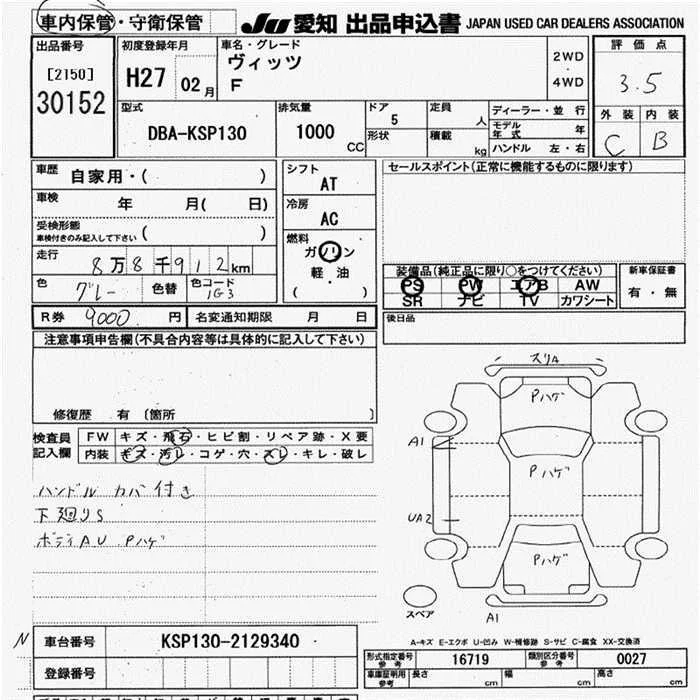 車内保管・守衛保管
JU 愛知 出品申込書 JAPAN USED CAR DEALERS ASSOCIATION
出品番号
[2150]
30152
初度登録年月
H27 02 月
車名・グレード
ヴィッツ
F
2WD
・
4WD
評価点
3.5
外装 内装
C B
型式
DBA-KSP130
排気量
1000 CC
ドア
5
形状
定員
人
積載
kg
ディーラー・並行
モデル年式 年
ハンドル 左・右
車歴
自家用・( )
車検 年 月( 日)
受検形態
車検付きのみ記入して下さい ( )
走行
8万8千912km
色 グレー 色替 色コード
1G3
シフト
AT
冷房
AC
燃料
ガソリン
軽・油
( )
セールスポイント(正常に機能するものに限ります)
装備品(純正品に限り○をつけてください)
PS PW エアB AW
SR ナビ TV カワシート
新車保証書
有・無
R券 9000 円 名変通知期限 月 日
後日品
注意事項申告欄(不具合内容等は具体的に記入して下さい)
修復歴 有 〔箇所 〕
検査員
記入欄
FW キズ・飛石・ヒビ割・リペア跡・X要
内装 キズ・汚レ・コゲ・穴・スレ・キレ・破レ
ハンドル カバー付き
下廻りS
ボディAU Pハゲ
スリA
Pハゲ
A1
Pハゲ
UA2
Pハゲ
スペア
A1
A-キズ E-エクボ U-凹み W-補修跡 S-サビ C-腐食 XX-交換済
N
車台番号 KSP130-2129340
登録番号
形式指定番号
参考
16719
類別区分番号
参考
0027
車庫証明用
参考
長さ cm 幅 cm 高さ cm